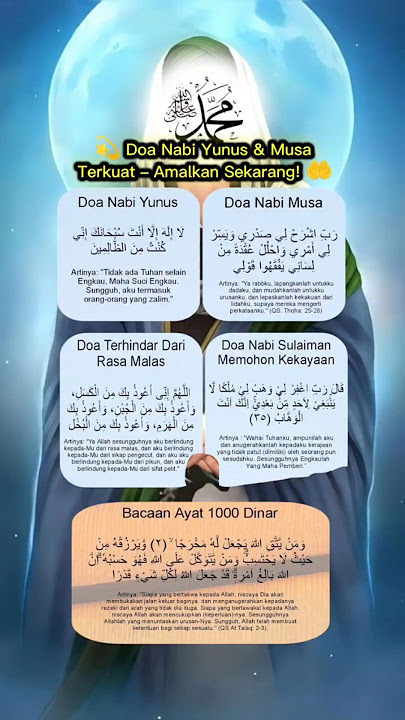 محمد ﷺ
💫 Doa Nabi Yunus & Musa
Terkuat – Amalkan Sekarang! 🤲
Doa Nabi Yunus
لَا إِلَهَ إِلَّا أَنْتَ سُبْحَانَكَ إِنِّي
كُنْتُ مِنَ الظَّالِمِينَ
Artinya: "Tidak ada Tuhan selain
Engkau, Maha Suci Engkau.
Sungguh, aku termasuk
orang-orang yang zalim."
Doa Nabi Musa
رَبِّ اشْرَحْ لِي صَدْرِي وَيَسِّرْ
لِي أَمْرِي وَاحْلُلْ عُقْدَةً مِنْ
لِسَانِي يَفْقَهُوا قَوْلِي
Artinya: "Ya rabbku, lapangkanlah untukku
dadaku, dan mudahkanlah untukku
urusanku, dan lepaskanlah kekakuan dari
lidahku, supaya mereka mengerti
perkataanku." (QS. Thoha: 25-28)
Doa Terhindar Dari
Rasa Malas
اللَّهُمَّ إِنِّى أَعُوذُ بِكَ مِنَ الْكَسَلِ،
وَأَعُوذُ بِكَ مِنَ الْجُبْنِ، وَأَعُوذُ بِكَ
مِنَ الْهَرَمِ، وَأَعُوذُ بِكَ مِنَ الْبُخْلِ
Artinya: "Ya Allah sesungguhnya aku berlindung
kepada-Mu dari rasa malas, dan aku aku
berlindung kepada-Mu dari sikap pengecut, dan aku aku
berlindung kepada-Mu dari pikun, dan aku
berlindung kepada-Mu dari sifat pelit."
Doa Nabi Sulaiman
Memohon Kekayaan
قَالَ رَبِّ اغْفِرْ لِيْ وَهَبْ لِيْ مُلْكًا لَّا
يَنْبَغِيْ لِاَحَدٍ مِّنْۢ بَعْدِيْۚ اِنَّكَ اَنْتَ
الْوَهَّابُ (٣٥)
Artinya : "Wahai Tuhanku, ampunilah aku
dan anugerahkanlah kepadaku kerajaan
yang tidak patut (dimiliki) oleh seorang pun
sesudahku. Sesungguhnya Engkaulah
Yang Maha Pemberi."
Bacaan Ayat 1000 Dinar
وَمَنْ يَّتَّقِ اللّٰهَ يَجْعَلْ لَّهٗ مَخْرَجًا ۙ (٢) وَّيَرْزُقْهُ مِنْ
حَيْثُ لَا يَحْتَسِبُۗ وَمَنْ يَّتَوَكَّلْ عَلَى اللّٰهِ فَهُوَ حَسْبُهٗ ۗاِنَّ
اللّٰهَ بَالِغُ اَمْرِهٖۗ قَدْ جَعَلَ اللّٰهُ لِكُلِّ شَيْءٍ قَدْرًا
Artinya: "Siapa yang bertakwa kepada Allah, niscaya Dia akan
membukakan jalan keluar baginya. dan menganugerahkan kepadanya
rezeki dari arah yang tidak dia duga. Siapa yang bertawakal kepada Allah,
niscaya Allah akan mencukupkan (keperluan)-nya. Sesungguhnya
Allahlah yang menuntaskan urusan-Nya. Sungguh, Allah telah membuat
ketentuan bagi setiap sesuatu." (QS At Talaq: 2-3).